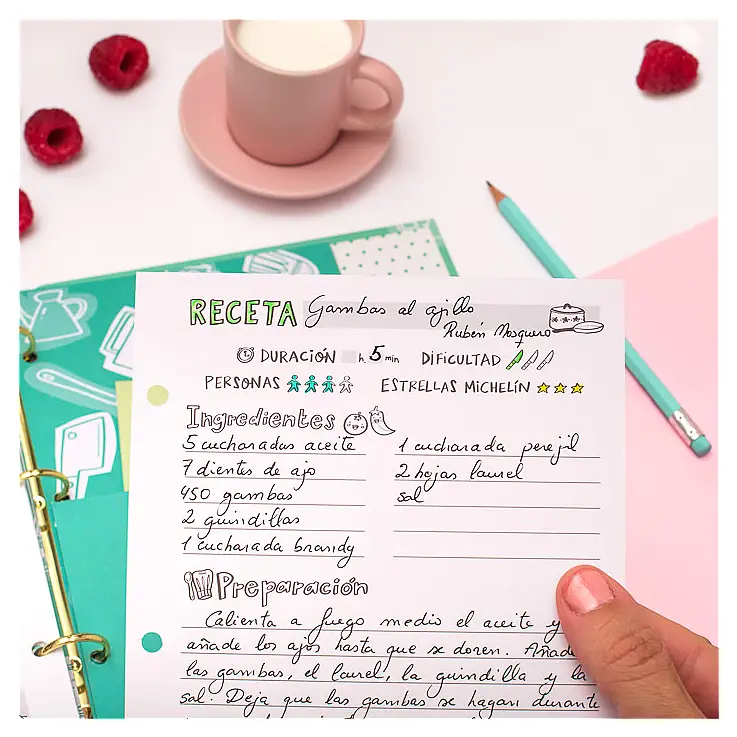 RECETA Gambas al ajillo
Rubén Mosquero
DURACIÓN h. 5 min DIFICULTAD
PERSONAS ESTRELLAS MICHELÍN
Ingredientes
5 cucharadas aceite
7 dientes de ajo
450 gambas
2 guindillas
1 cucharada brandy
1 cucharada perejil
2 hojas laurel
sal
Preparación
Calienta a fuego medio el aceite y
añade los ajos hasta que se doren. Añade
las gambas, el laurel, la guindilla y la
sal. Deja que las gambas se hagan durante